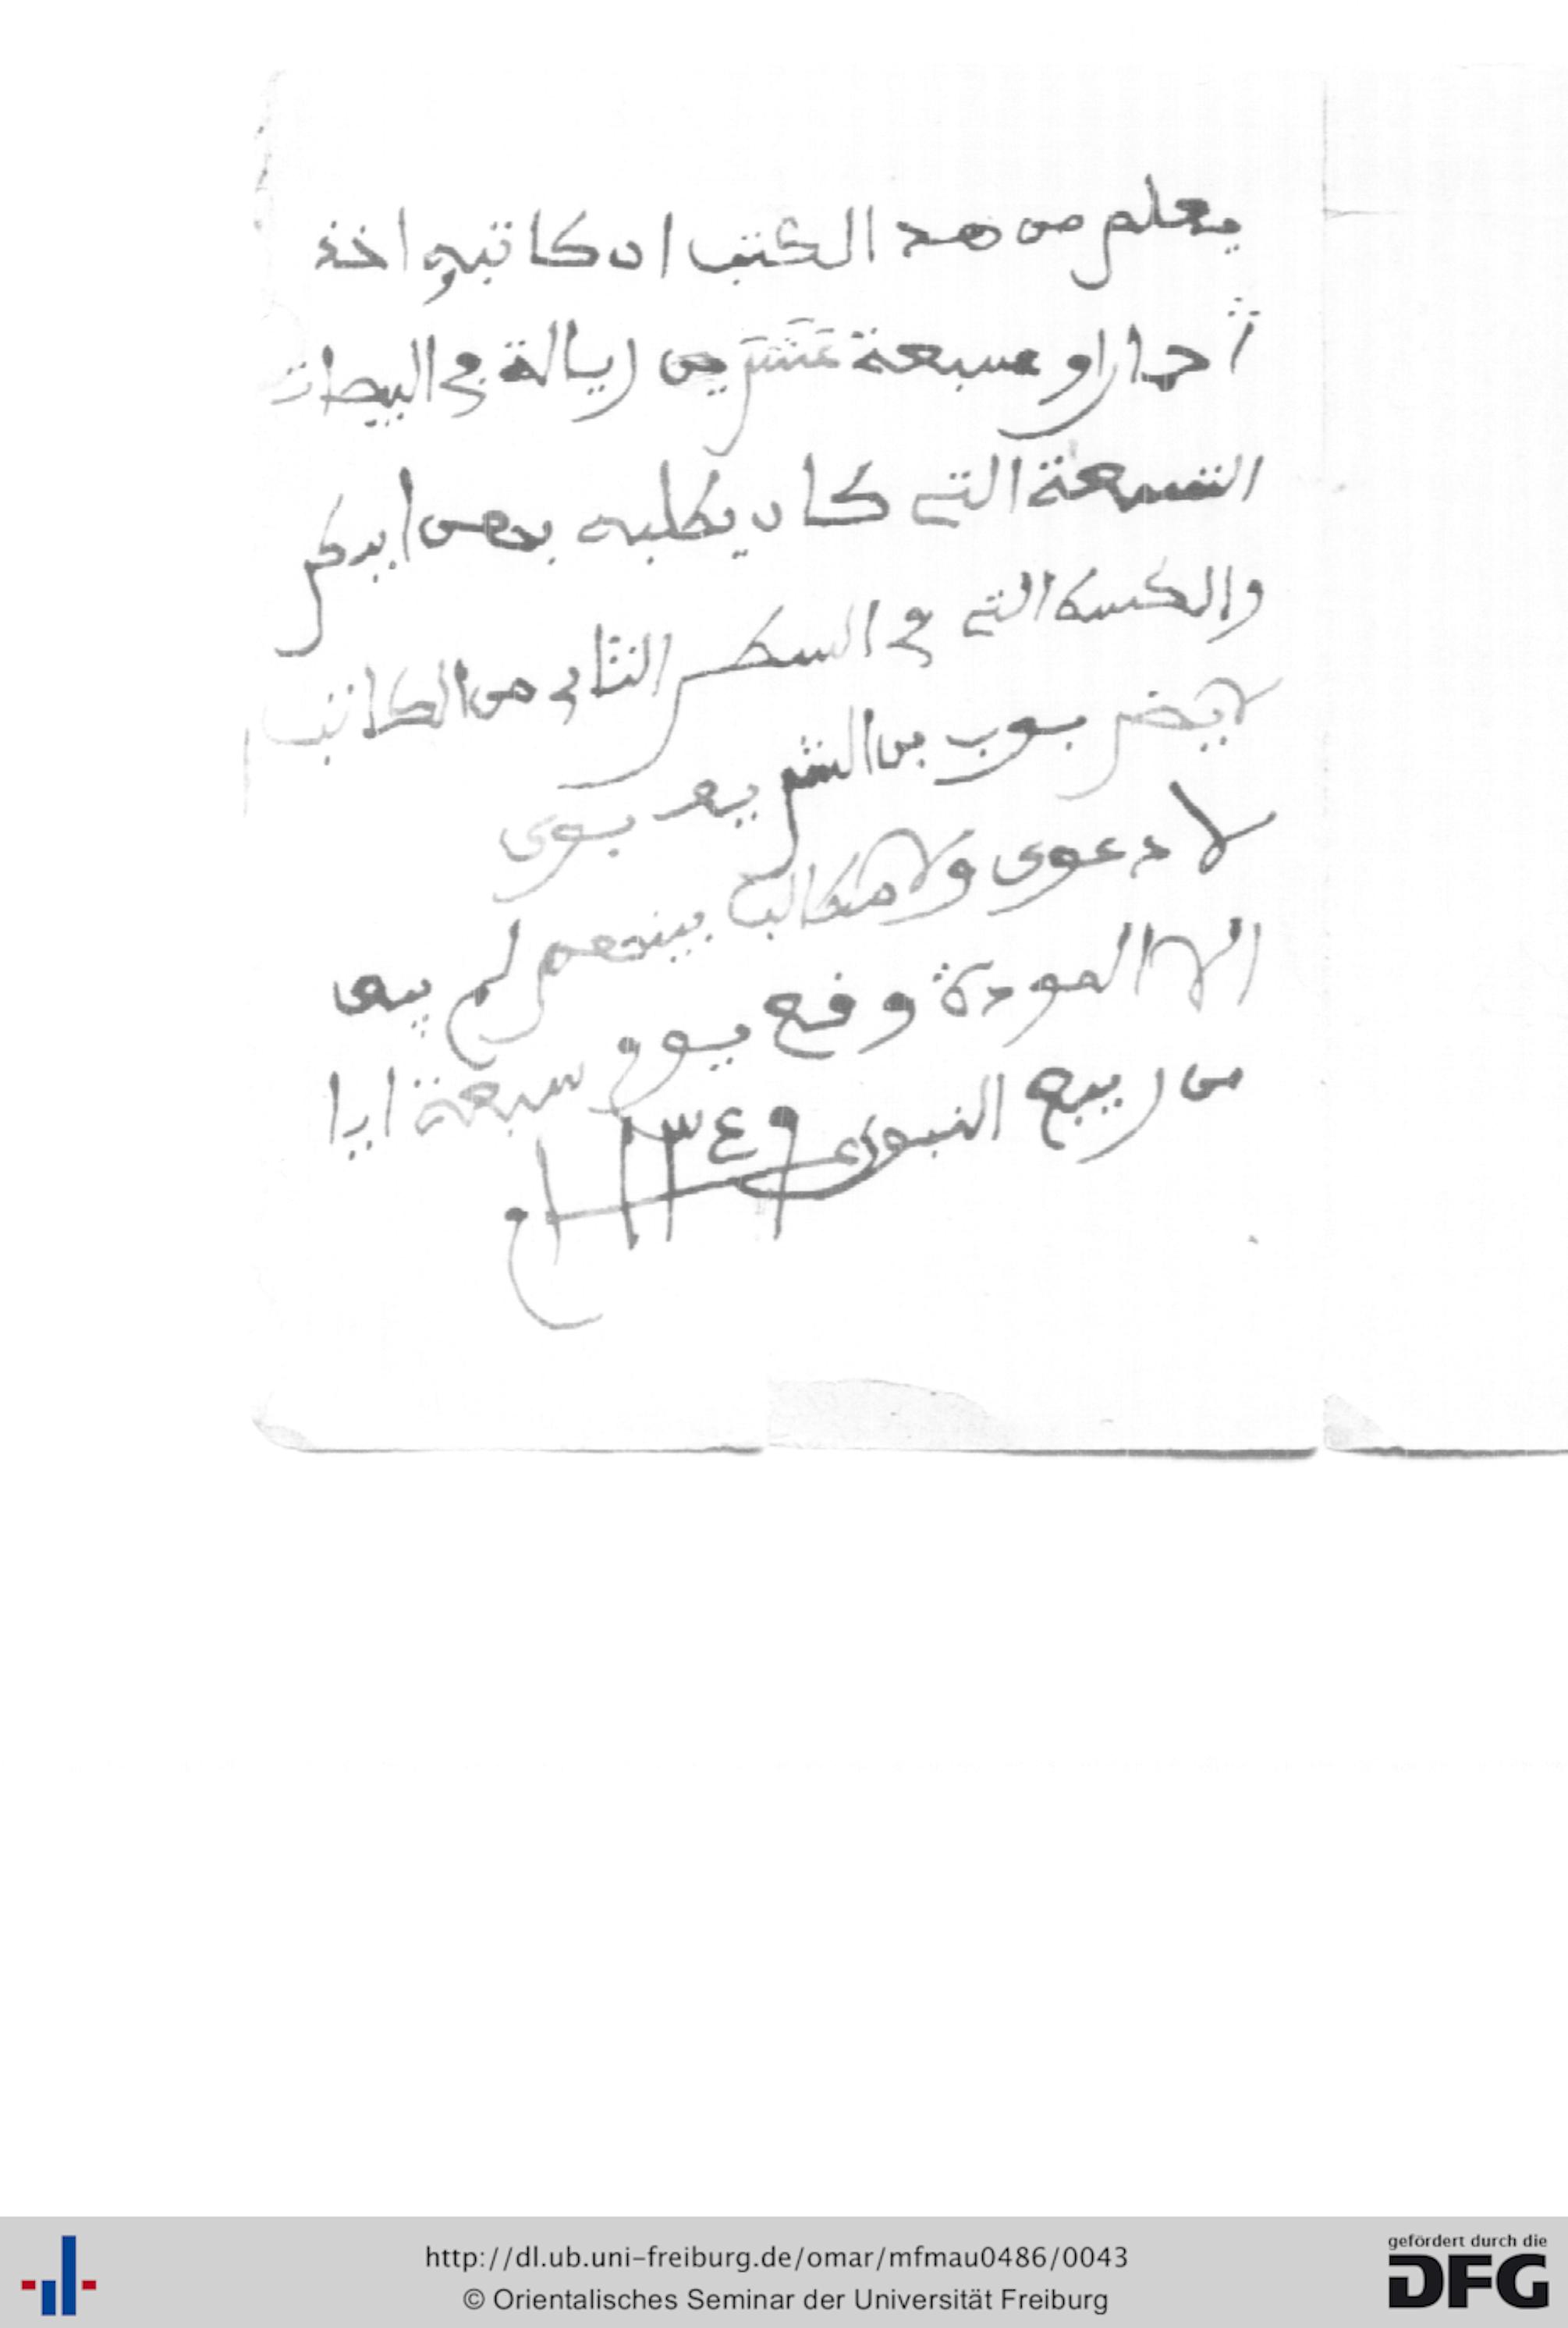 يعلم من هد الكتب ان كاتبه اخذ
وسبعة عشر من ريالة في البيصات
التسعة التي كان يطلبه بعض
والكسه التي في السطر الثاني من الكاتب
لا يضر بوب بن الشريف
لا دعوى ولا مطالب بينهم لم يبق
الا المودة وقع يوم سبعة ايا
من ربيع النبوي ١٣٤٩ ا م
http://dl.ub.uni-freiburg.de/omar/mfmau0486/0043
© Orientalisches Seminar der Universität Freiburg
gefördert durch die
DFG